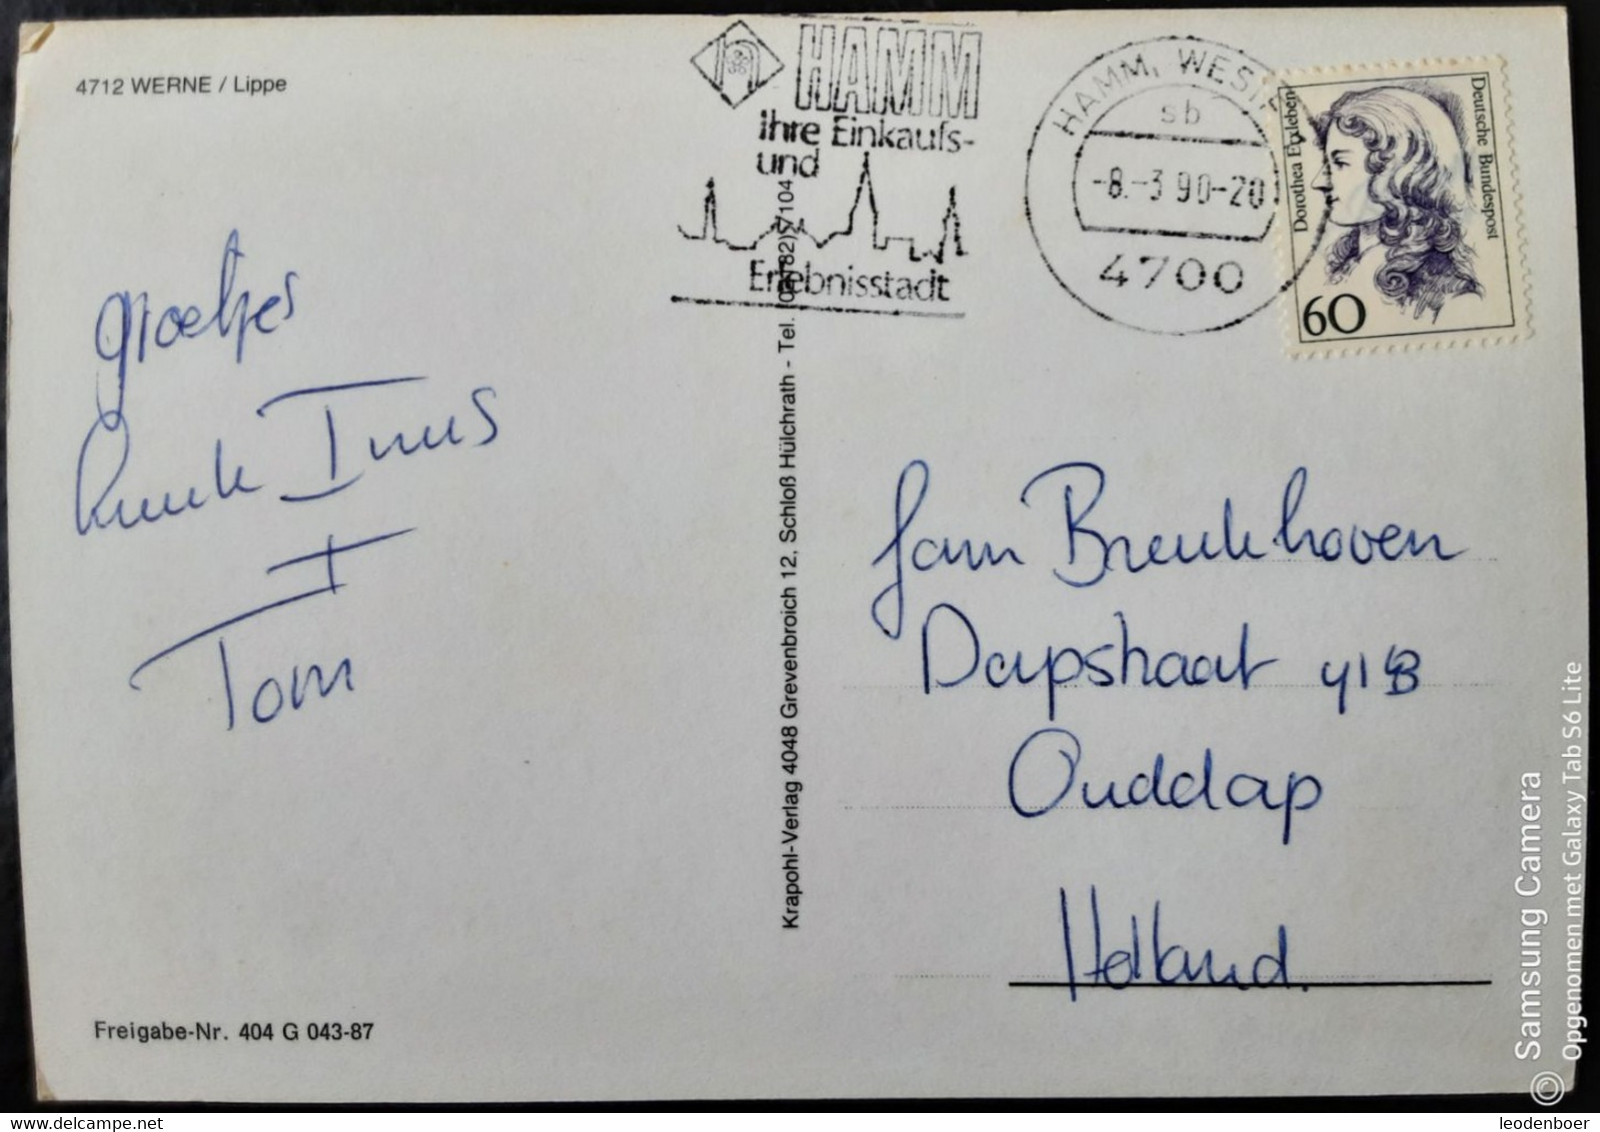 4712 WERNE / Lippe
HAMM
Ihre Einkaufs-
und
Erlebnisstadt
HAMM, WESTF
sb
-8.-3.90-20
4700
Dorothea Erxleben
Deutsche Bundespost
60
groetjes
Tinus
+
Tom
Krapohl-Verlag 4048 Grevenbroich 12, Schloß Hülchrath - Tel. (02182) 57104
fam Breukhoven
Dapstraat 41B
Ouddorp
Holland.
Freigabe-Nr. 404 G 043-87
© Samsung Camera
Opgenomen met Galaxy Tab S6 Lite
leodenboer